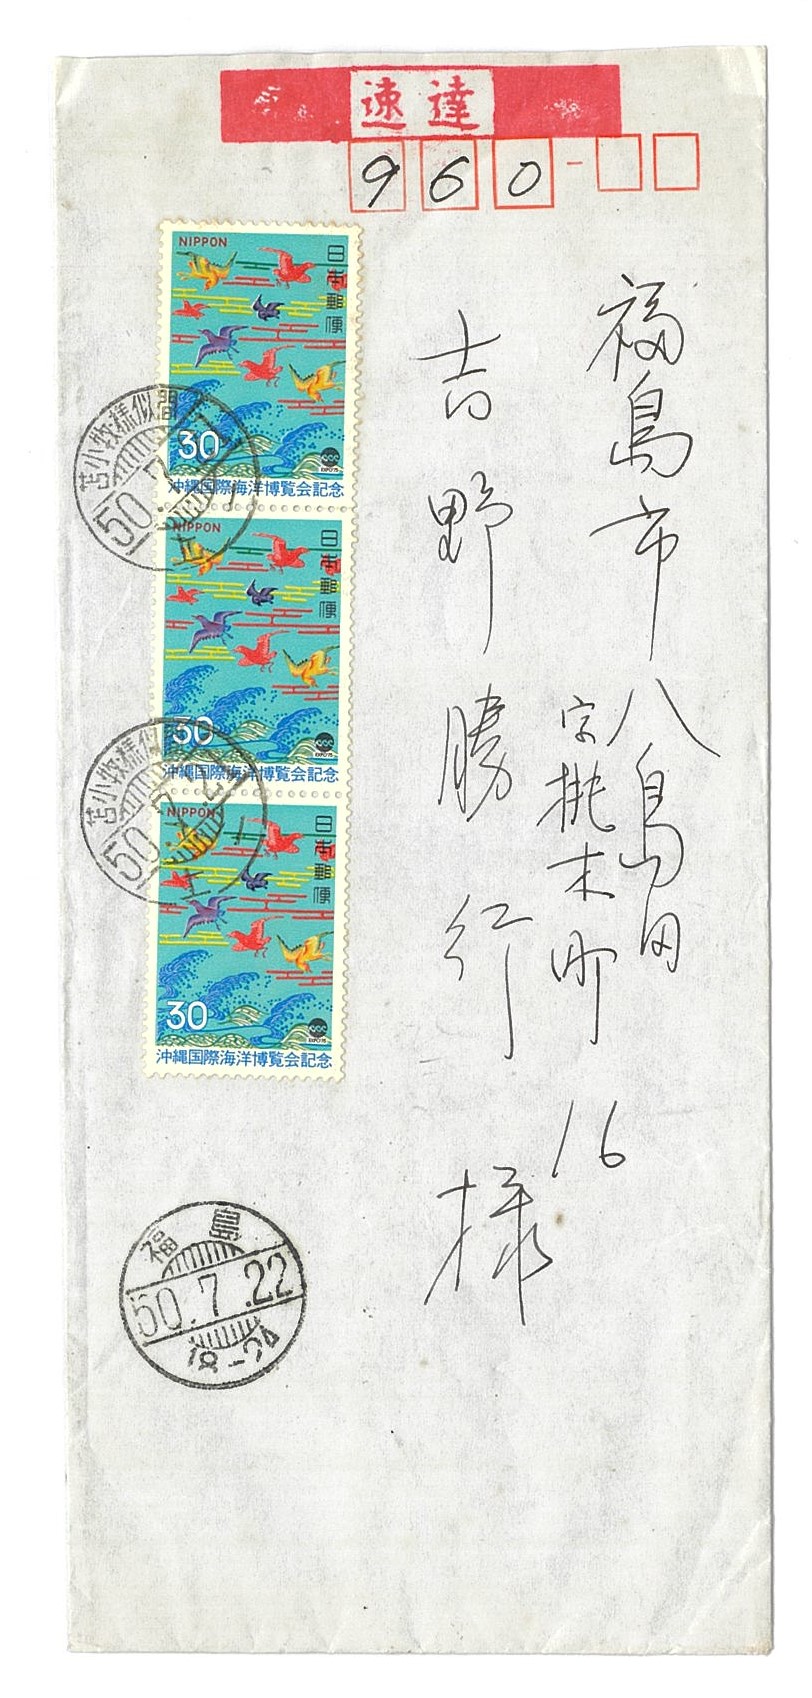 速達
960-
福島市八島田
字桃木町 16
吉野勝行様
NIPPON
日本郵便
30
EXPO'75
沖縄国際海洋博覧会記念
NIPPON
日本郵便
30
EXPO'75
沖縄国際海洋博覧会記念
NIPPON
日本郵便
30
EXPO'75
沖縄国際海洋博覧会記念
苫小牧様似間
50.7.
上
苫小牧様似
50.7.
上
福島
50.7.22
18-24